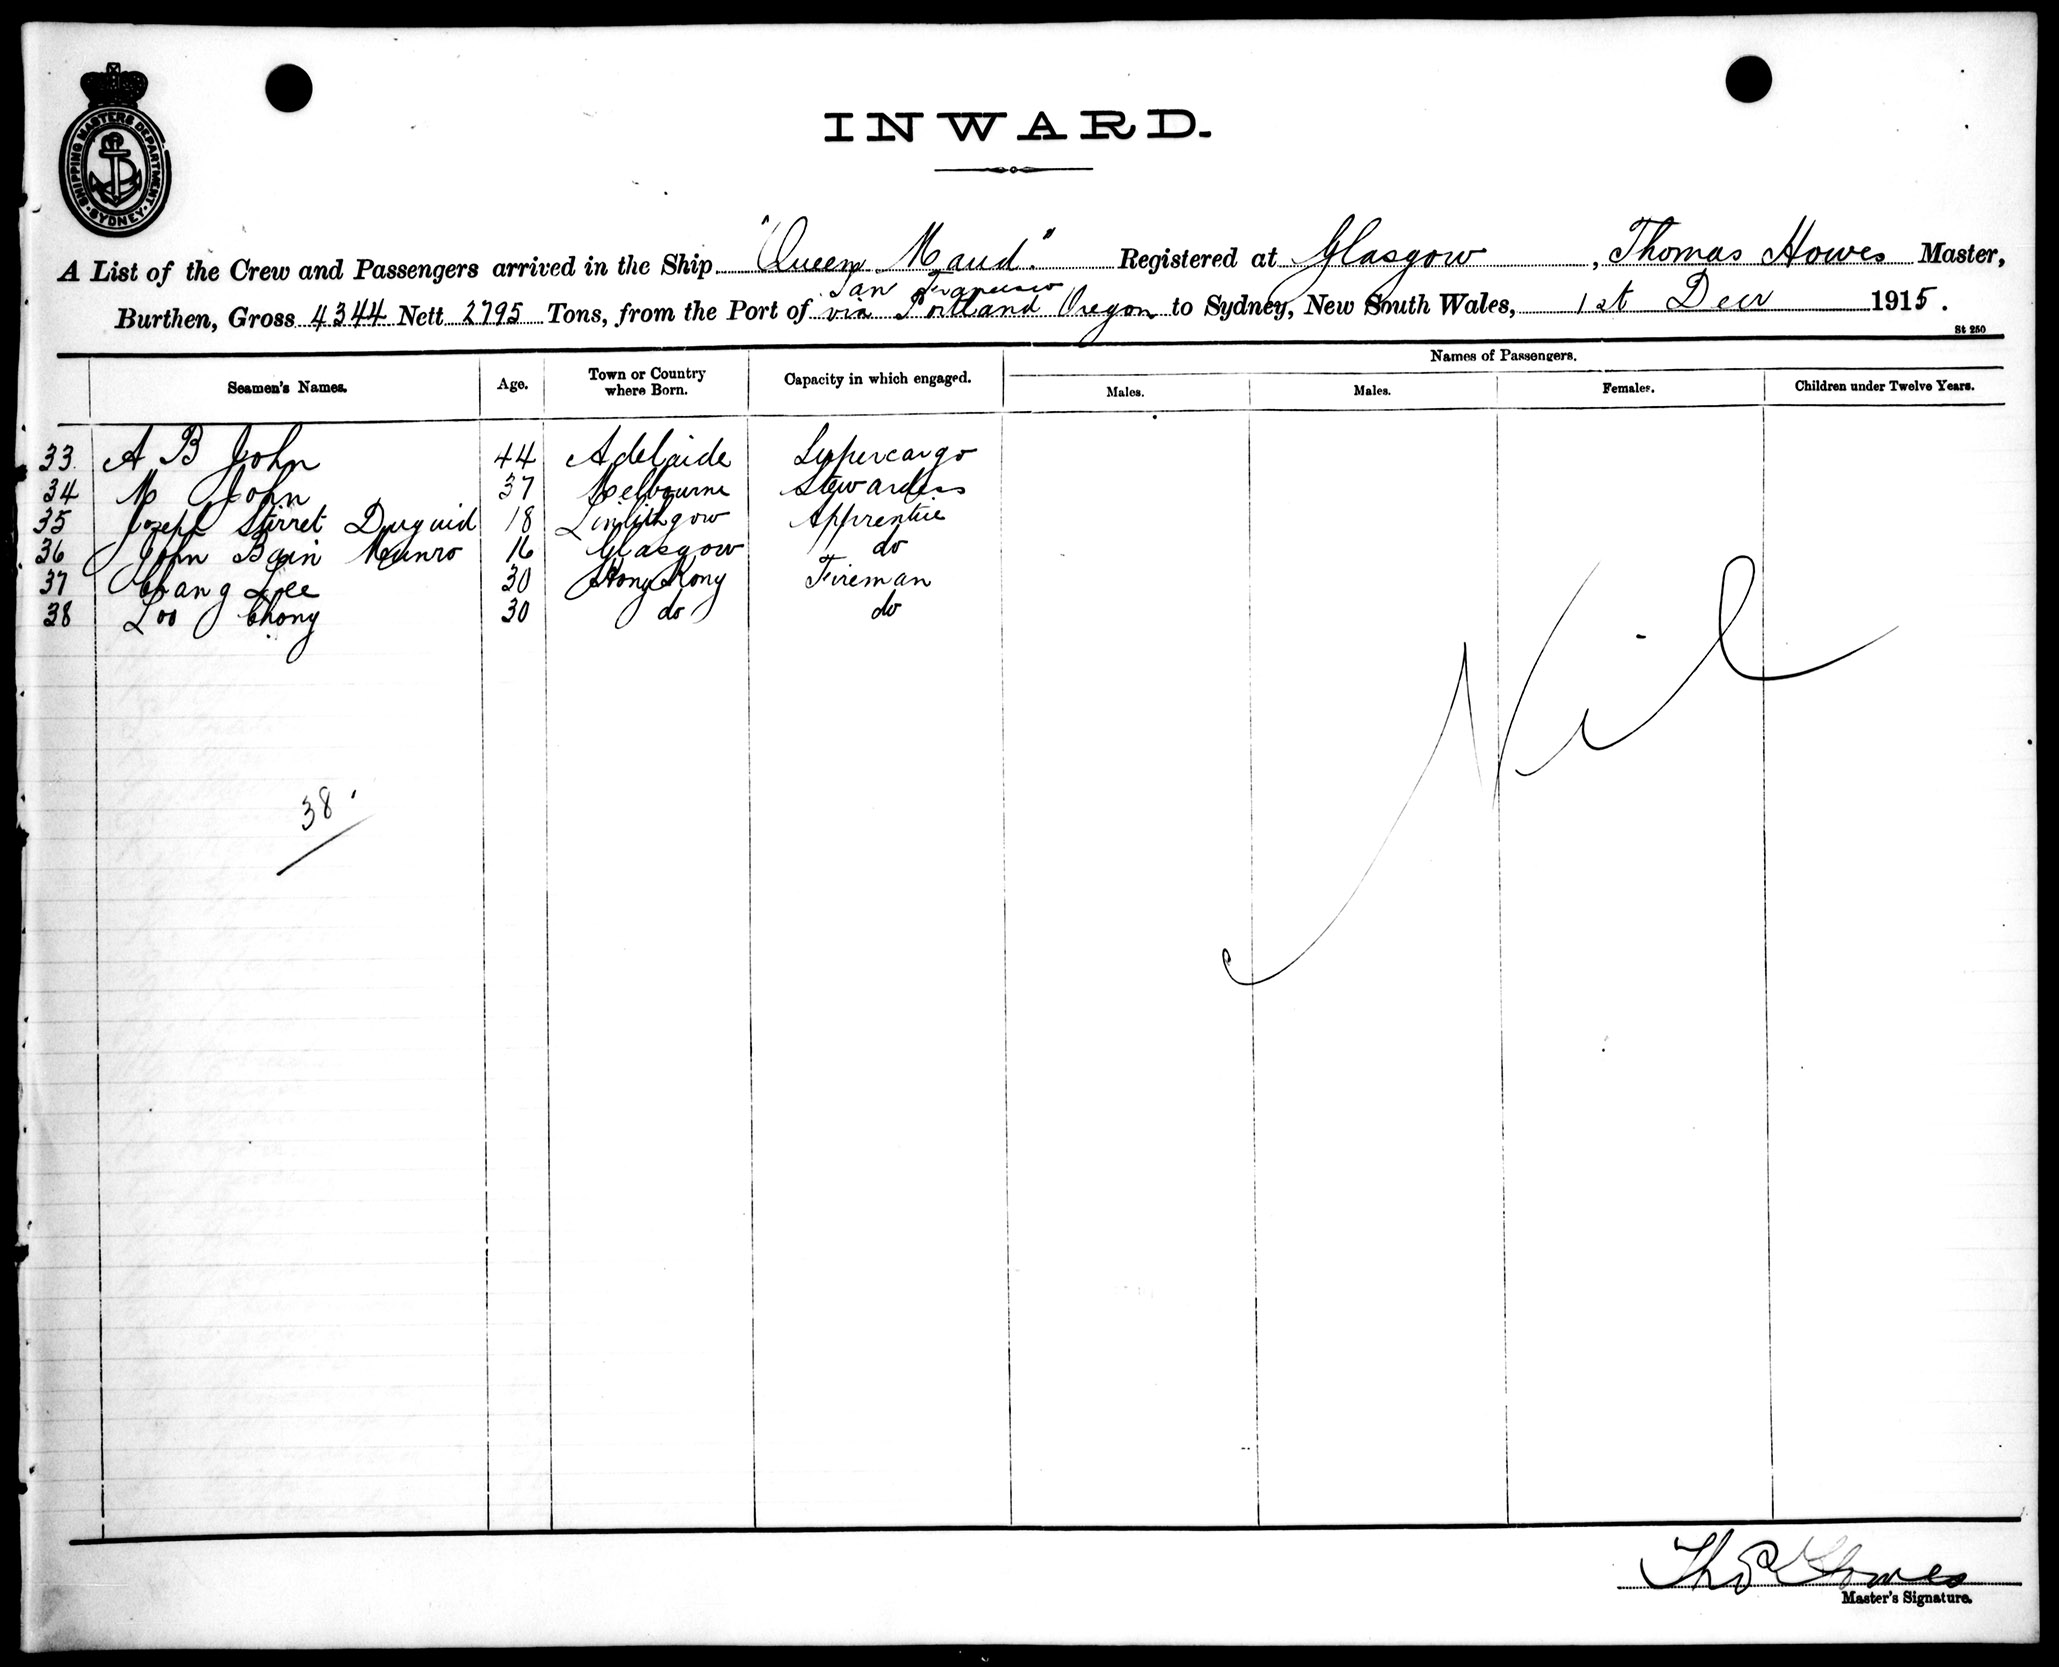 SHIPPING MASTERS DEPARTMENT
SYDNEY
INWARD.
A List of the Crew and Passengers arrived in the Ship "Queen Maud." Registered at Glasgow, Thomas Howes Master,
San Francisco
Burthen, Gross 4344 Nett 2795 Tons, from the Port of via Portland Oregon to Sydney, New South Wales, 1st Decr 1915.
St 250
Names of Passengers.
Seamen's Names. Age. Town or Country where Born. Capacity in which engaged. Males. Males. Females. Children under Twelve Years.
33. A B John 44 Adelaide Supercargo
34 M John 37 Melbourne Stewardess
35 Jozeph Stirret Duguid 18 Linlithgow Apprentice
36 John Bain Munro 16 Glasgow do
37 Chang Lee 30 Hong Kong Fireman
38 Loo Chong 30 do do
Nil
38.
Thos Howes
Master's Signature.